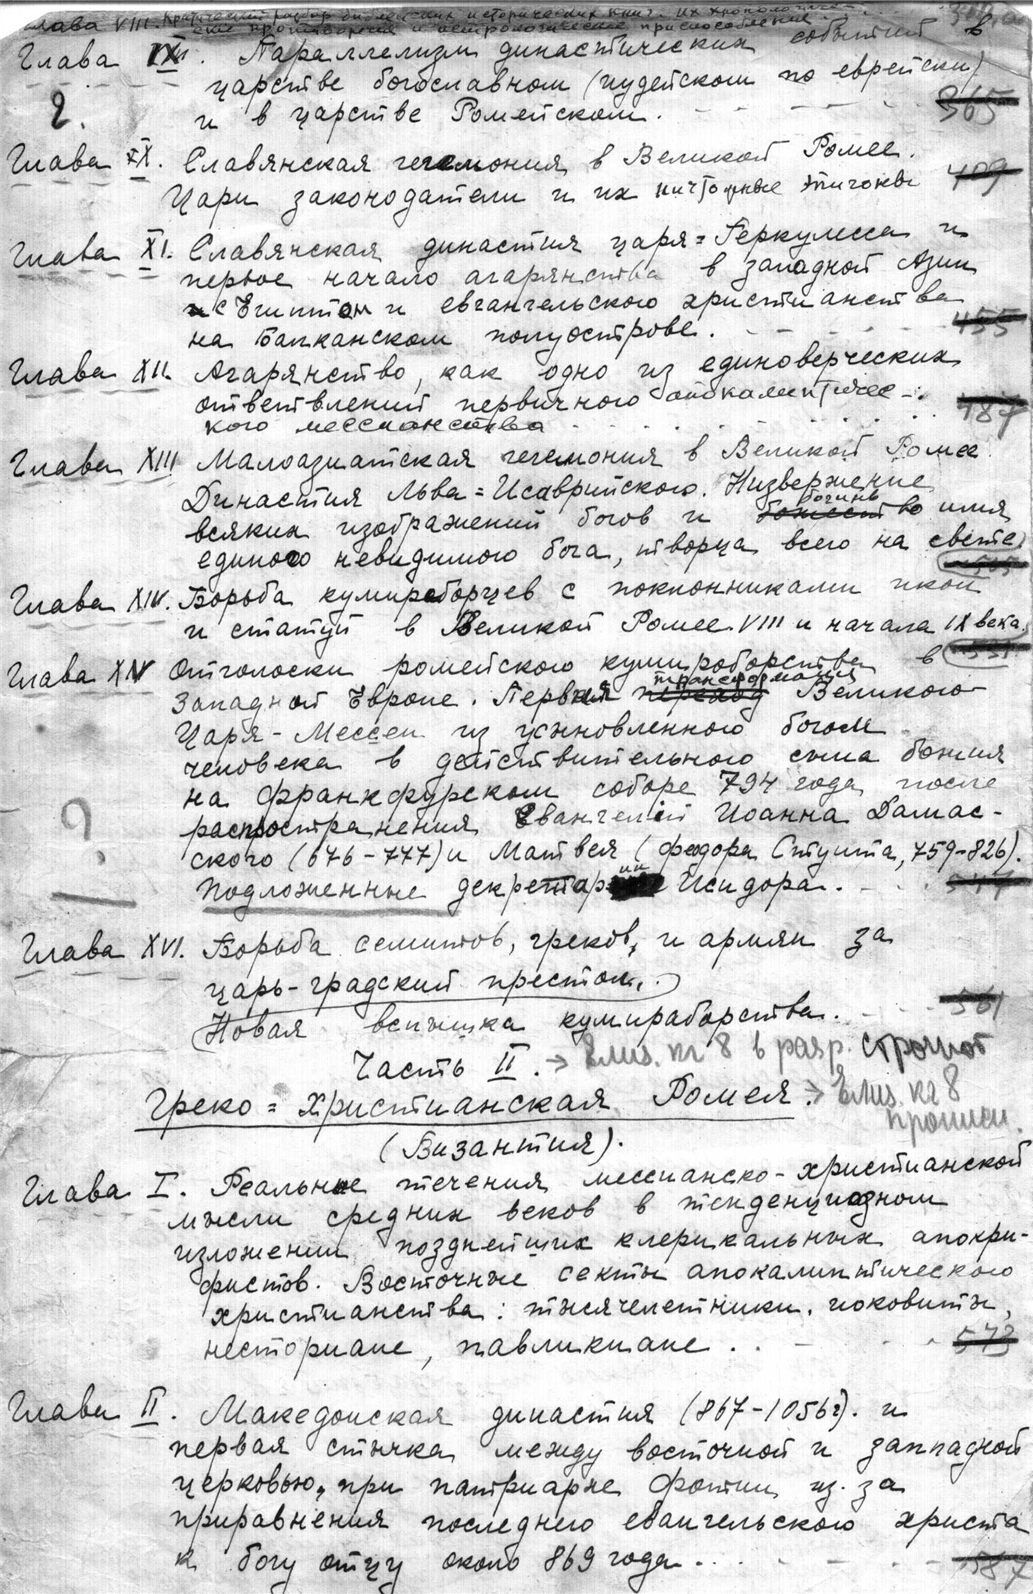 Глава VIII. Критический разбор библейских исторических книг. Их хронологичес-
кие противоречия и астрологические приспособления.
Глава IX. Параллелизм династических событий в
царстве богославном (иудейском по еврейски)
и в царстве Ромейском. 365
2.
Глава X. Славянская гегемония в Великой Ромее.
Цари законодатели и их 409
Глава XI. Славянская династия царя=Геркулеса и
первое начало агарянства в западной Азии
с Египтом и евангельского христианства
на Балканском полуострове. 455
Глава XII. Агарянство, как одно из единоверческих
ответвлений первичного апокалиптичес-
кого мессианства 487
Глава XIII Малоазиатская гегемония в Великой Ромее.
Династия Льва=Исаврийского. Низвержение
всяких изображений богов и богинь во имя
единого невидимого бога, творца всего на свете.
Глава XIV. Борьба кумироборцев с поклонниками икон
и статуй в Великой Ромее VIII и начала IX века.
Глава XV Отголоски ромейского кумироборства в
Западной Европе. Первая трансформация переход Великого
Царя-Мессеи из усыновленного богом
человека в действительного сына божия
на Франкфурском соборе 794 года после
распространения Евангелий Иоанна Дамас-
ского (676-777) и Матвея (Феодора Студита, 759-826).
Подложенные декреталии Исидора. 547
?
Глава XVI. Борьба семитов, греков, и армян за
царь-градский престол.
Новая вспышка кумироборства. 561
Часть II. → Елиз. кг 8 в разр. строчной
Греко=христианская Ромея. → Елиз. кг 8
прописн.
(Византия).
Глава I. Реальные течения мессианско-христианской
мысли средних веков в тенденциозном
изложении позднейших клерикальных апокри-
фистов. Восточные секты апокалиптического
христианства: тысячелетники, иаковиты,
несториане, павликиане.. 573
Глава II. Македонская династия (867-1056г). и
первая стычка между восточной и западной
церковью, при патриархе Фотии, из-за
приравнения последнего евангельского христа
к богу отцу около 869 года.. 587